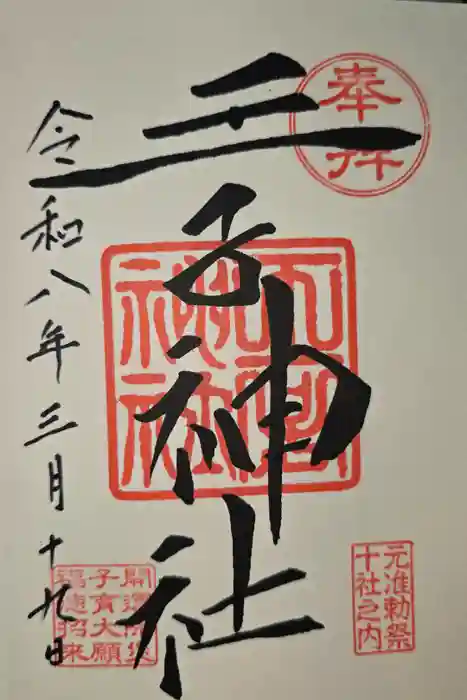 奉拝
王子神社
令和八年三月十九日
元准勅祭
十社之内
開運
子育大願
福徳招来